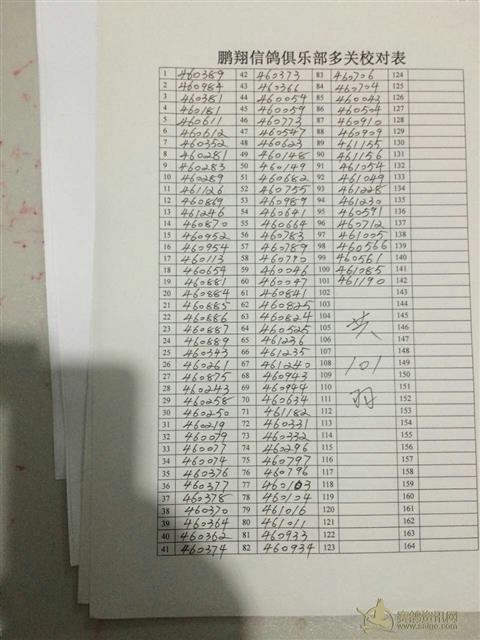 鹏翔信鸽俱乐部多关校对表
1 460389 42 460373 83 460706 124
2 460984 43 460366 84 460704 125
3 460381 44 460054 85 460043 126
4 460181 45 460059 86 460504 127
5 460611 46 460773 87 460910 128
6 460612 47 460547 88 460909 129
7 460352 48 460623 89 461155 130
8 460281 49 460148 90 461156 131
9 460283 50 460149 91 461054 132
10 460289 51 460682 92 461049 133
11 461126 52 460755 93 461228 134
12 460869 53 460989 94 461230 135
13 461246 54 460641 95 460591 136
14 460870 55 460664 96 460712 137
15 460952 56 460783 97 461005 138
16 460954 57 460789 98 460566 139
17 460113 58 460790 99 460561 140
18 460654 59 460046 100 461085 141
19 460881 60 460047 101 461190 142
20 460884 61 460841 102 143
21 460885 62 460825 103 144
22 460886 63 460824 104 145
23 460887 64 460525 105 146
24 460889 65 461236 106 147
25 460343 66 461235 107 148
26 460261 67 461240 108 149
27 460875 68 460943 109 150
28 460243 69 460944 110 151
29 460258 70 460634 111 152
30 460250 71 461182 112 153
31 460219 72 460331 113 154
32 460079 73 460332 114 155
33 460077 74 460296 115 156
34 460074 75 460797 116 157
35 460376 76 460796 117 158
36 460377 77 460103 118 159
37 460378 78 460104 119 160
38 460370 79 461016 120 161
39 460364 80 461011 121 162
40 460362 81 460933 122 163
41 460374 82 460934 123 164
共
101
羽
赛鸽资讯网
www.saige.com